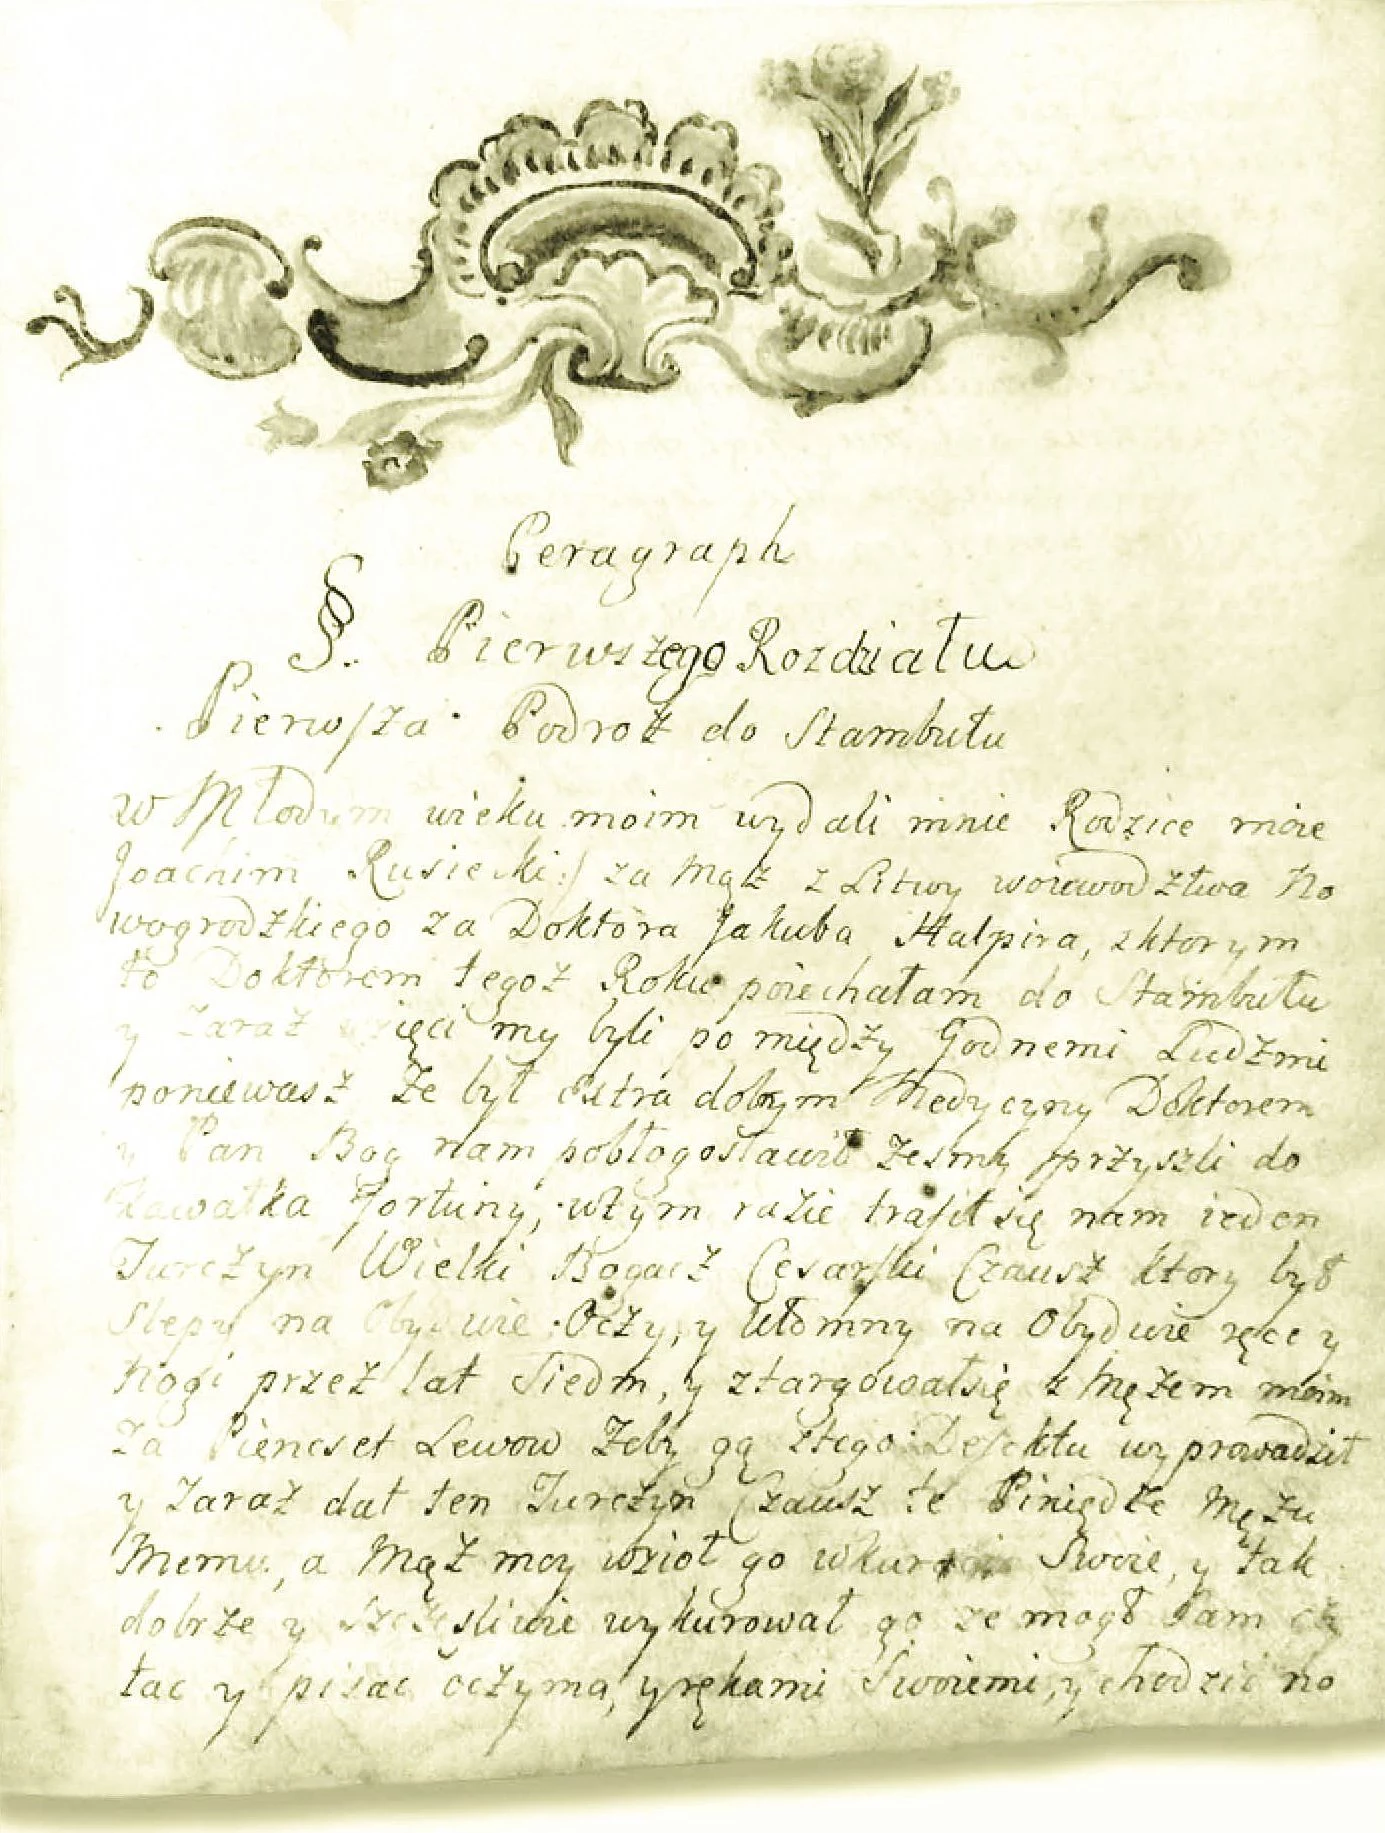 Peragraph
§. Pierwszego Rozdziału
Pierwsza Podroż do Stambułu
w Młodym wieku moim wydali mnie Rodzice moie
Joachim Rusiecki:/ za Mąż z Litwy woiewodztwa No
wogrodzkiego za Doktora Jakuba Halpira, z ktorym
to Doktorem tegoż Roku poiechałam do Stambułu
y Zaraż wzięci my byli po między Godnemi Ludzmi
poniewasz że był extra dobrym Medycyny Doktorem
y Pan Bog nam pobłogosławił żesmy przyszli do
Kawałka Fortuny, wtym razie trafił się nam ieden
Turczyn Wielki Bogacz Cesarski Czausz ktory był
Slepy na Obydwie Oczy, y Ułomny na Obydwie ręce y
Nogi przez lat Siedm, y ztargowałsię z Mężem moim
Za Piencset Lewow Żeby gą ztego Defektu wyprowadził
y Zaraż dał ten Turczyn Czausz te Piniędze Mężu
Memu, a Mąż moy wzioł go w Swoie, y tak
dobrze y szczęsliwie wykurował go że mogł Sam czy
tac y pisac oczyma, y rękami Swoiemi, y chodzić no